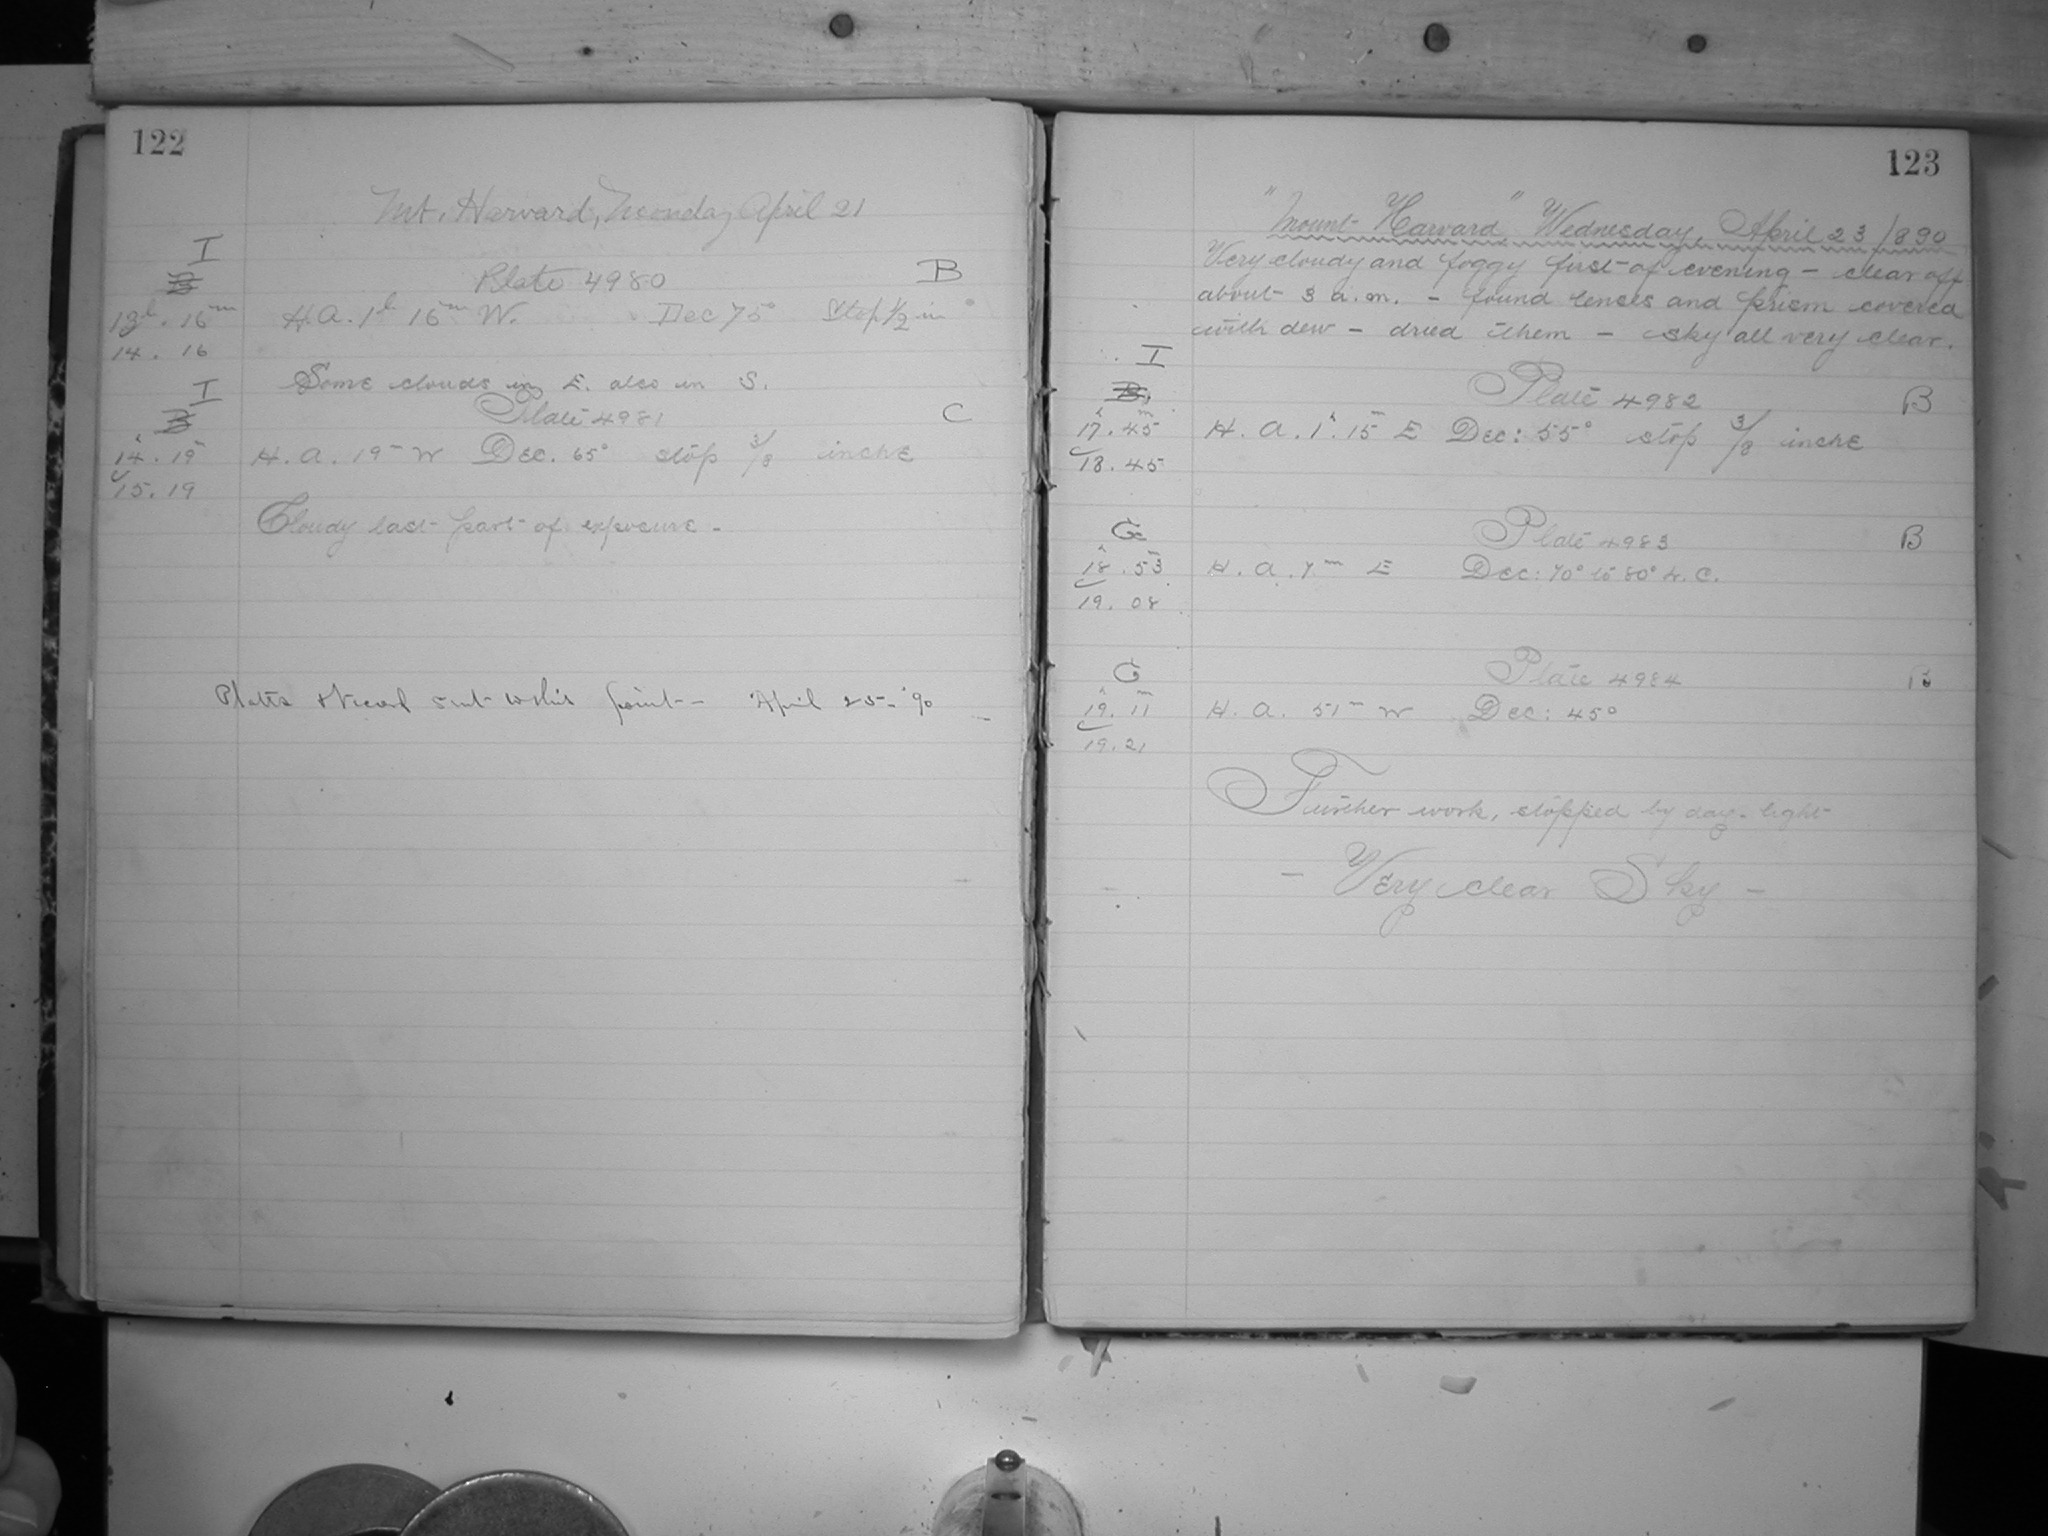 122
Mt. Harvard, Monday April 21
I
Plate 4980 B
13h. 16m H.A. 1h 16m W. Dec 75° Stop 1/2 in
14. 16
Some clouds in E. also in S.
I
Plate 4981 C
14. 19 H. A. 19m W Dec. 65° stop 3/8 inche
15. 19
Cloudy last part of exposure -
Plates & record sent to this point - April 25 - '90
123
"Mount Harvard" Wednesday, April 23/890
Very cloudy and foggy first of evening - clear off
about 3 a.m. - found lenses and prism covered
with dew - dried them - sky all very clear.
I
B Plate 4982 B
17h. 45m H. A. 1h. 15m E Dec: 55° stop 3/8 inche
18. 45
G Plate 4983 B
18h. 53m H. A. 7m E Dec: 70° to 80° L. C.
19. 08
G Plate 4984 B
19h. 11m H. A. 51m W Dec: 45°
19. 21
Further work, stopped by day-light
- Very clear Sky -